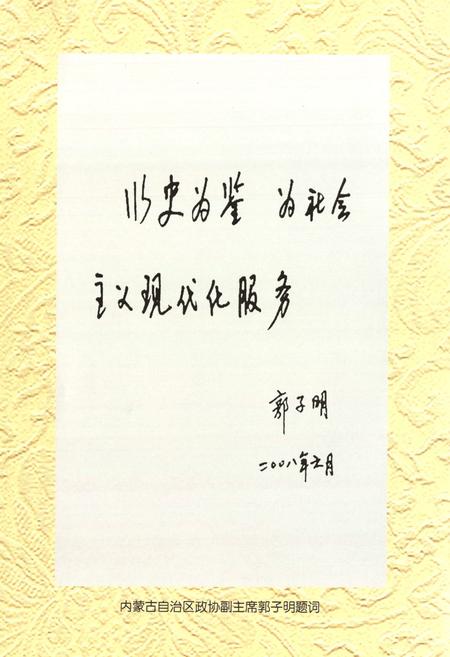 以史为鉴 为社会
主义现代化服务
郭子明
二〇〇八年六月
内蒙古自治区政协副主席郭子明题词